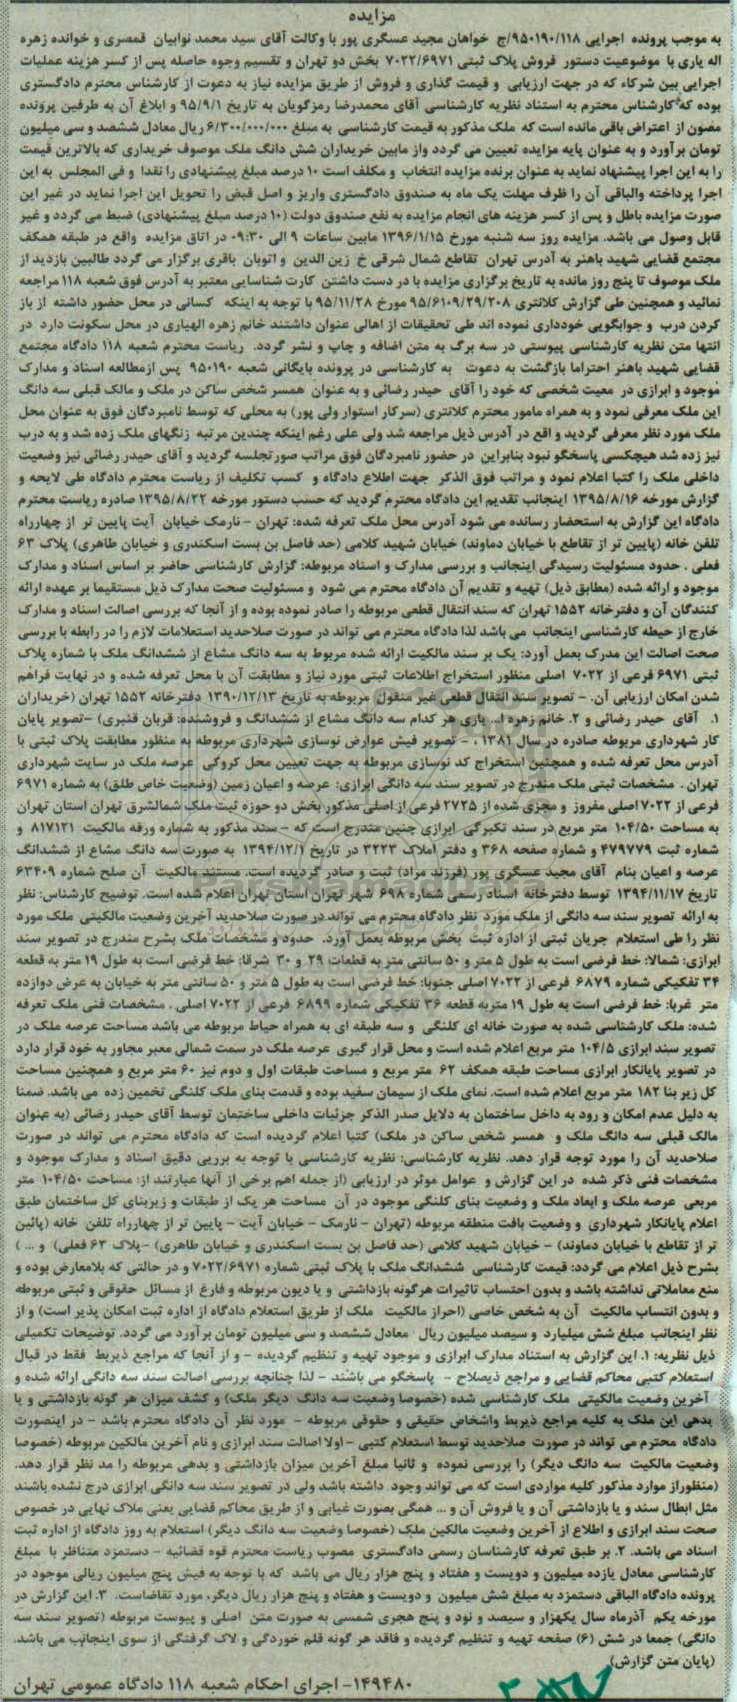 مزایده
به موجب پرونده اجرایی ۹۵۰۱۹۰/۱۱۸/ج خواهان مجید عسگری پور با وکالت آقای سید محمد نوابیان قمصری و خوانده زهره
اله یاری با موضوعیت دستور فروش پلاک ثبتی ۷۰۲۲/۶۹۷۱ بخش دو تهران و تقسیم وجوه حاصله پس از کسر هزینه عملیات
اجرایی بین شرکاء که در جهت ارزیابی و قیمت گذاری و فروش از طریق مزایده نیاز به دعوت از کارشناس محترم دادگستری
بوده که کارشناس محترم به استناد نظریه کارشناسی آقای محمدرضا رمزگویان به تاریخ ۹۵/۹/۱ و ابلاغ آن به طرفین پرونده
مصون از اعتراض باقی مانده است که ملک مذکور به قیمت کارشناسی به مبلغ ۶/۳۰۰/۰۰۰/۰۰۰ ریال معادل ششصد و سی میلیون
تومان برآورد و به عنوان پایه مزایده تعیین می گردد واز مابین خریداران شش دانگ ملک موصوف خریداری که بالاترین قیمت
را به این اجرا پیشنهاد نماید به عنوان برنده مزایده انتخاب و مکلف است ۱۰ درصد مبلغ پیشنهادی را نقدا و فی المجلس به این
اجرا پرداخته والباقی آن را ظرف مهلت یک ماه به صندوق دادگستری واریز و اصل قبض را تحویل این اجرا نماید در غیر این
صورت مزایده باطل و پس از کسر هزینه های انجام مزایده به نفع صندوق دولت (۱۰ درصد مبلغ پیشنهادی) ضبط می گردد و غیر
قابل وصول می باشد. مزایده روز سه شنبه مورخ ۱۳۹۶/۱/۱۵ مابین ساعات ۹ الی ۰۹:۳۰ در اتاق مزایده واقع در طبقه همکف
مجتمع قضایی شهید باهنر به آدرس تهران تقاطع شمال شرقی خ زین الدین و اتوبان باقری برگزار می گردد طالبین بازدید از
ملک موصوف تا پنج روز مانده به تاریخ برگزاری مزایده با در دست داشتن کارت شناسایی معتبر به آدرس فوق شعبه ۱۱۸ مراجعه
نمائید و همچنین طی گزارش کلانتری ۹۵/۶۱۰۹/۲۹/۲۰۸ مورخ ۹۵/۱۱/۲۸ با توجه به اینکه کسانی در محل حضور داشته از باز
کردن درب و جوابگویی خودداری نموده اند طی تحقیقات از اهالی عنوان داشتند خانم زهره الهیاری در محل سکونت دارد در
انتها متن نظریه کارشناسی پیوستی در سه برگ به متن اضافه و چاپ و نشر گردد. ریاست محترم شعبه ۱۱۸ دادگاه مجتمع
قضایی شهید باهنر احتراما بازگشت به دعوت به کارشناسی در پرونده بایگانی شعبه ۹۵۰۱۹۰ پس ازمطالعه اسناد و مدارک
موجود و ابرازی در معیت شخصی که خود را آقای حیدر رضائی و به عنوان همسر شخص ساکن در ملک و مالک قبلی سه دانگ
این ملک معرفی نمود و به همراه مامور محترم کلانتری (سرکار استوار ولی پور) به محلی که توسط نامبردگان فوق به عنوان محل
ملک مورد نظر معرفی گردید و اقع در آدرس ذیل مراجعه شد ولی علی رغم اینکه چندین مرتبه زنگهای ملک زده شد و به درب
نیز زده شد هیچکسی پاسخگو نبود بنابراین در حضور نامبردگان فوق مراتب صورتجلسه گردید و آقای حیدر رضائی نیز وضعیت
داخلی ملک را کتبا اعلام نمود و مراتب فوق الذکر جهت اطلاع دادگاه و کسب تکلیف از ریاست محترم دادگاه طی لایحه و
گزارش مورخه ۱۳۹۵/۸/۱۶ اینجانب تقدیم این دادگاه محترم گردید که حسب دستور مورخه ۱۳۹۵/۸/۲۲ صادره ریاست محترم
دادگاه این گزارش به استحضار رسانده می شود آدرس محل ملک تعرفه شده: تهران - نارمک خیابان آیت پایین تر از چهارراه
تلفن خانه (پایین تر از تقاطع با خیابان دماوند) خیابان شهید کلامی (حد فاصل بن بست اسکندری و خیابان طاهری) پلاک ۶۳
فعلی . حدود مسئولیت رسیدگی اینجانب و بررسی مدارک و اسناد مربوطه: گزارش کارشناسی حاضر بر اساس اسناد و مدارک
موجود و ارائه شده (مطابق ذیل) تهیه و تقدیم آن دادگاه محترم می شود و مسئولیت صحت مدارک ذیل مستقیما بر عهده ارائه
کنندگان آن و دفترخانه ۱۵۵۲ تهران که سند انتقال قطعی مربوطه را صادر نموده بوده و از آنجا که بررسی اصالت اسناد و مدارک
خارج از حیطه کارشناسی اینجانب می باشد لذا دادگاه محترم می تواند در صورت صلاحدید استعلامات لازم را در رابطه با بررسی
صحت اصالت این مدرک بعمل آورد: یک بر سند مالکیت ارائه شده مربوط به سه دانگ مشاع از ششدانگ ملک با شماره پلاک
ثبتی ۶۹۷۱ فرعی از ۷۰۲۲ اصلی منظور استخراج اطلاعات ثبتی مورد نیاز و مطابقت آن با محل تعرفه شده و در نهایت فراهم
شدن امکان ارزیابی آن. - تصویر سند انتقال قطعی غیر منقول مربوطه به تاریخ ۱۳۹۰/۱۲/۱۳ دفترخانه ۱۵۵۲ تهران (خریداران
۱. آقای حیدر رضائی و ۲. خانم زهره ا... یاری هر کدام سه دانگ مشاع از ششدانگ و فروشنده: قربان قنبری) -تصویر پایان
کار شهرداری مربوطه صادره در سال ۱۳۸۱ ، - تصویر فیش عوارض نوسازی شهرداری مربوطه به منظور مطابقت پلاک ثبتی با
آدرس محل تعرفه شده و همچنین استخراج کد نوسازی مربوطه به جهت تعیین محل کروکی عرصه ملک در سایت شهرداری
تهران . مشخصات ثبتی ملک مندرج در تصویر سند سه دانگی ابرازی: عرصه و اعیان زمین (وضعیت خاص طلق) به شماره ۶۹۷۱
فرعی از ۷۰۲۲ اصلی مفروز و مجزی شده از ۲۷۲۵ فرعی از اصلی مذکور بخش دو حوزه ثبت ملک شمالشرق تهران استان تهران
به مساحت ۱۰۴/۵۰ متر مربع در سند تکبرگی ابرازی چنین مندرج است که - سند مذکور به شماره ورقه مالکیت ۸۱۷۱۲۱ و
شماره ثبت ۴۷۹۷۷۹ و شماره صفحه ۳۶۸ و دفتر املاک ۳۲۲۳ در تاریخ ۱۳۹۴/۱۲/۱ به صورت سه دانگ مشاع از ششدانگ
عرصه و اعیان بنام آقای مجید عسگری پور (فرزند مراد) ثبت و صادر گردیده است. مستند مالکیت آن صلح شماره ۶۳۴۰۹
تاریخ ۱۳۹۴/۱۱/۱۷ توسط دفترخانه اسناد رسمی شماره ۶۹۸ شهر تهران استان تهران اعلام شده است. توضیح کارشناس: نظر
به ارائه تصویر سند سه دانگی از ملک مورد نظر دادگاه محترم می تواند در صورت صلاحدید آخرین وضعیت مالکیتی ملک مورد
نظر را طی استعلام جریان ثبتی از اداره ثبت بخش مربوطه بعمل آورد. حدود و مشخصات ملک بشرح مندرج در تصویر سند
ابرازی: شمالا: خط فرضی است به طول ۵ متر و ۵۰ سانتی متر به قطعات ۲۹ و ۳۰ شرقا: خط فرضی است به طول ۱۹ متر به قطعه
۳۴ تفکیکی شماره ۶۸۷۹ فرعی از ۷۰۲۲ اصلی جنوبا: خط فرضی است به طول ۵ متر و ۵۰ سانتی متر به خیابان به عرض دوازده
متر غربا: خط فرضی است به طول ۱۹ متربه قطعه ۳۶ تفکیکی شماره ۶۸۹۹ فرعی از ۷۰۲۲ اصلی . مشخصات فنی ملک تعرفه
شده: ملک کارشناسی شده به صورت خانه ای کلنگی و سه طبقه ای به همراه حیاط مربوطه می باشد مساحت عرصه ملک در
تصویر سند ابرازی ۱۰۴/۵ متر مربع اعلام شده است و محل قرار گیری عرصه ملک در سمت شمالی معبر مجاور به خود قرار دارد
در تصویر پایانکار ابرازی مساحت طبقه همکف ۶۲ متر مربع و مساحت طبقات اول و دوم نیز ۶۰ متر مربع و همچنین مساحت
کل زیر بنا ۱۸۲ متر مربع اعلام شده است. نمای ملک از سیمان سفید بوده و قدمت بنای ملک کلنگی تخمین زده می باشد. ضمنا
به دلیل عدم امکان و رود به داخل ساختمان به دلایل صدر الذکر جزئیات داخلی ساختمان توسط آقای حیدر رضائی (به عنوان
مالک قبلی سه دانگ ملک و همسر شخص ساکن در ملک) کتبا اعلام گردیده است که دادگاه محترم می تواند در صورت
صلاحدید آن را مورد توجه قرار دهد. نظریه کارشناسی: نظریه کارشناسی با توجه به برریی دقیق اسناد و مدارک موجود و
مشخصات فنی ذکر شده در این گزارش و عوامل موثر در ارزیابی (از جمله اهم برخی از آنها عبارتند از: مساحت ۱۰۴/۵۰ متر
مربعی عرصه ملک و ابعاد ملک و وضعیت بنای کلنگی موجود در آن مساحت هر یک از طبقات و زیربنای کل ساختمان طبق
اعلام پایانکار شهرداری و وضعیت بافت منطقه مربوطه (تهران - نارمک - خیابان آیت - پایین تر از چهارراه تلفن خانه (پائین
تر از تقاطع با خیابان دماوند) - خیابان شهید کلامی (حد فاصل بن بست اسکندری و خیابان طاهری) -پلاک ۶۳ فعلی) و ... )
بشرح ذیل اعلام می گردد: قیمت کارشناسی ششدانگ ملک با پلاک ثبتی شماره ۷۰۲۲/۶۹۷۱ و در حالتی که بلامعارض بوده و
منع معاملاتی نداشته باشد و بدون احتساب تاثیرات هرگونه بازداشتی و یا دیون مربوطه و فارغ از مسائل حقوقی و ثبتی مربوطه
و بدون انتساب مالکیت آن به شخص خاصی (احراز مالکیت ملک از طریق استعلام دادگاه از اداره ثبت امکان پذیر است) و از
نظر اینجانب مبلغ شش میلیارد و سیصد میلیون ریال معادل ششصد و سی میلیون تومان برآورد می گردد. توضیحات تکمیلی
ذیل نظریه: ۱. این گزارش به استناد مدارک ابرازی و موجود تهیه و تنظیم گردیده - و از آنجا که مراجع ذیربط فقط در قبال
استعلام کتبی محاکم قضایی و مراجع ذیصلاح - پاسخگو می باشند - لذا چنانچه بررسی اصالت سند سه دانگی ارائه شده و
آخرین وضعیت مالکیتی ملک کارشناسی شده (خصوصا وضعیت سه دانگ دیگر ملک) و کشف میزان هر گونه بازداشتی و یا
بدهی این ملک به کلیه مراجع ذیربط واشخاص حقیقی و حقوقی مربوطه - مورد نظر آن دادگاه محترم باشد - در اینصورت
دادگاه محترم می تواند در صورت صلاحدید توسط استعلام کتبی - اولا اصالت سند ابرازی و نام آخرین مالکین مربوطه (خصوصا
وضعیت مالکیت سه دانگ دیگر) را بررسی نموده و ثانیا مبلغ آخرین میزان بازداشتی و بدهی مربوطه را مد نظر قرار دهد.
(منظوراز موارد مذکور کلیه مواردی است که می تواند وجود داشته باشد ولی در تصویر سند سه دانگی ابرازی درج نشده باشند
مثل ابطال سند و یا بازداشتی آن و یا فروش آن و ... همگی بصورت غیابی و از طریق محاکم قضایی یعنی ملاک نهایی در خصوص
صحت سند ابرازی و اطلاع از آخرین وضعیت مالکین ملک (خصوصا وضعیت سه دانگ دیگر) استعلام به روز دادگاه از اداره ثبت
اسناد می باشد. ۲. بر طبق تعرفه کارشناسان رسمی دادگستری مصوب ریاست محترم قوه قضائیه - دستمزد متناظر با مبلغ
کارشناسی معادل یازده میلیون و دویست و هفتاد و پنج هزار ریال می باشد که با توجه به فیش پنج میلیون ریالی موجود در
پرونده دادگاه الباقی دستمزد به مبلغ شش میلیون و دویست و هفتاد و پنج هزار ریال دیگر، مورد تقاضاست. ۳. این گزارش در
مورخه یکم آذرماه سال یکهزار و سیصد و نود و پنج هجری شمسی به صورت متن اصلی و پیوست مربوطه (تصویر سند سه
دانگی) جمعا در شش (۶) صفحه تهیه و تنظیم گردیده و فاقد هر گونه قلم خوردگی و لاک گرفتگی از سوی اینجانب می باشد.
(پایان متن گزارش)
۱۴۹۴۸۰- اجرای احکام شعبه ۱۱۸ دادگاه عمومی تهران